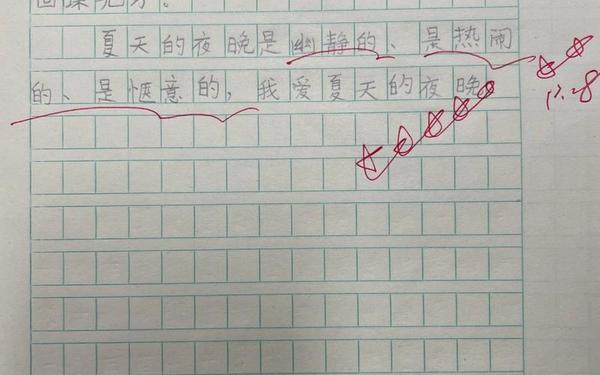 夏天的夜晚是幽静的、是热闹
的、是惬意的，我爱夏天的夜晚